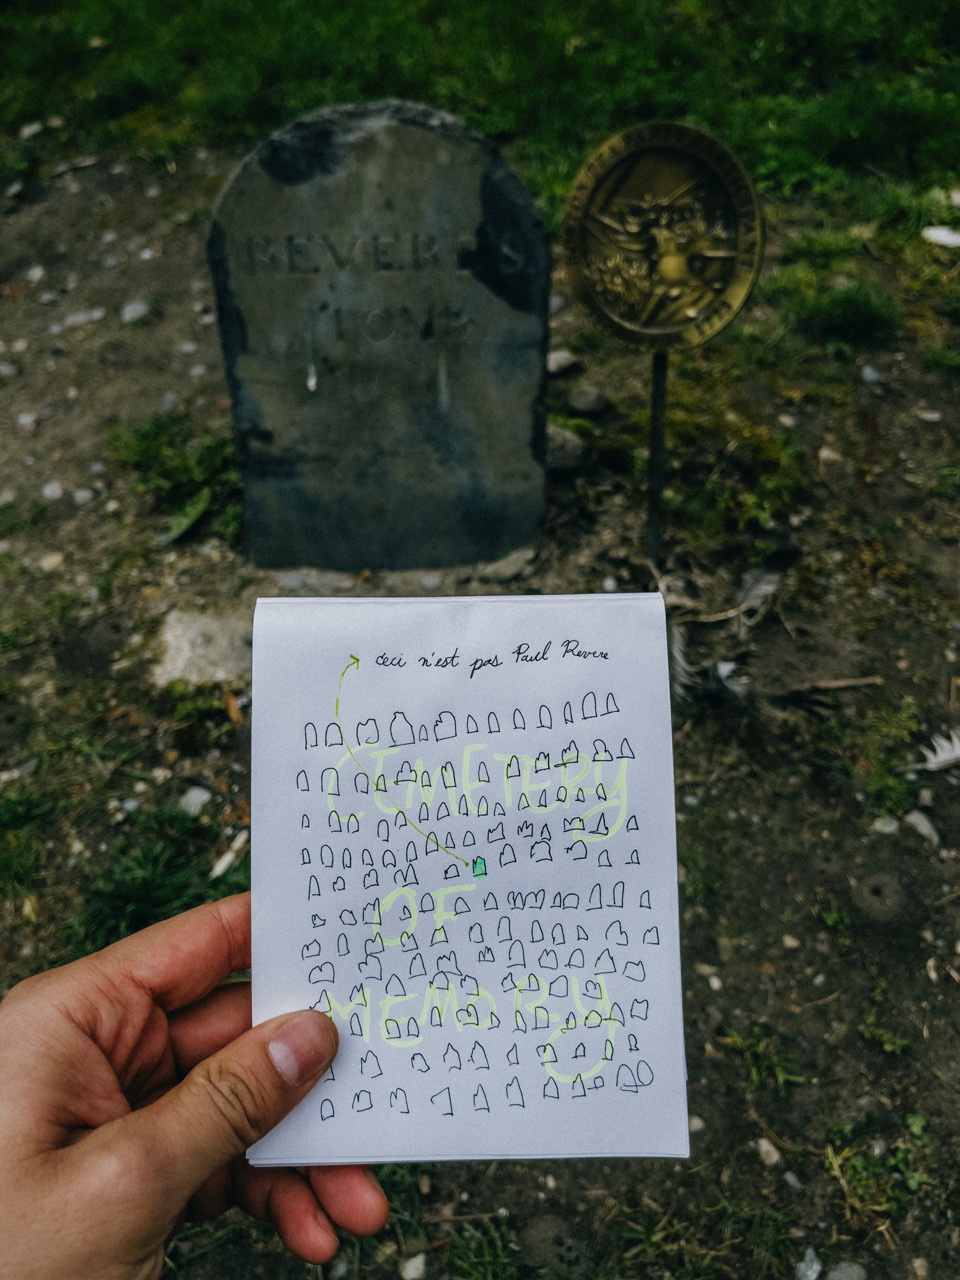 REVERE'S
TOMB
ceci n'est pas Paul Revere
CEMETERY
OF
MEMORY